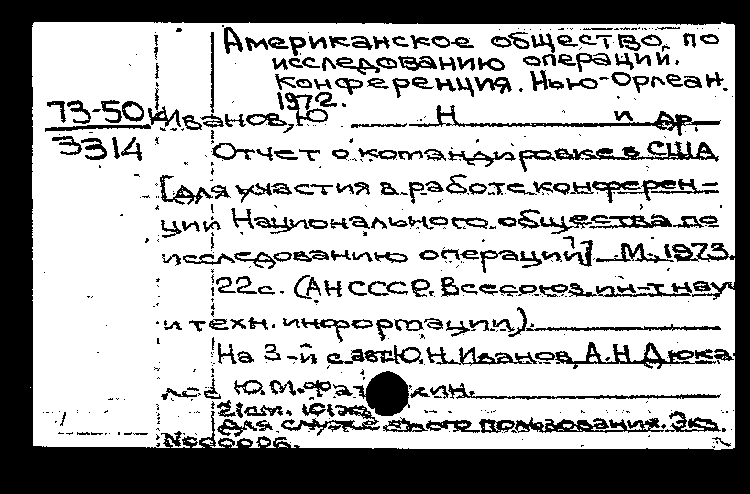 Американское общество по
исследованию операций.
Конференция. Нью-Орлеан.
1972.
73-50
3314
Иванов, Ю Н и др.
Отчет о командировке в США
[для участия в работе конферен=
ции Национального общества по
исследованию операций]. М., 1973.
22с. (АН СССР. Всесоюз. ин-т науч
и техн. информации).
На 3-й с. авт: Ю.Н. Иванов, А.Н. Дюка
лов Ю.М. кин.
21см.
Для служебного пользования. Экз.
№000006.